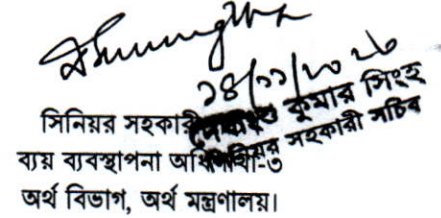 ১৪/১১/২০২৬
কুমার সিংহ
সিনিয়র সহকারী সচিব
সিনিয়র সহকারী
ব্যয় ব্যবস্থাপনা অধিশাখা-৩
অর্থ বিভাগ, অর্থ মন্ত্রণালয়।